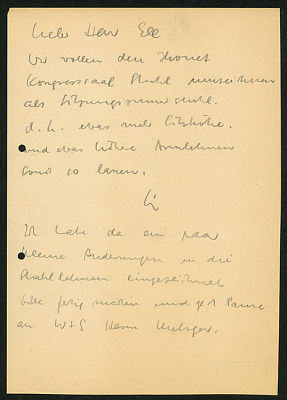 Lieber Herr Ell
Wir wollen den
Kongresssaal Stuhl umzeichnen
als Sitzungszimmerstuhl.
d.h. etwas mehr Sitzhöhe.
und etwas höhere Armlehnen
sonst so lassen.
Ich habe da ein paar
kleine Änderungen in die
Stuhllehnen eingezeichnet
bitte fertig machen und je 1 Pause
an W+S Herrn